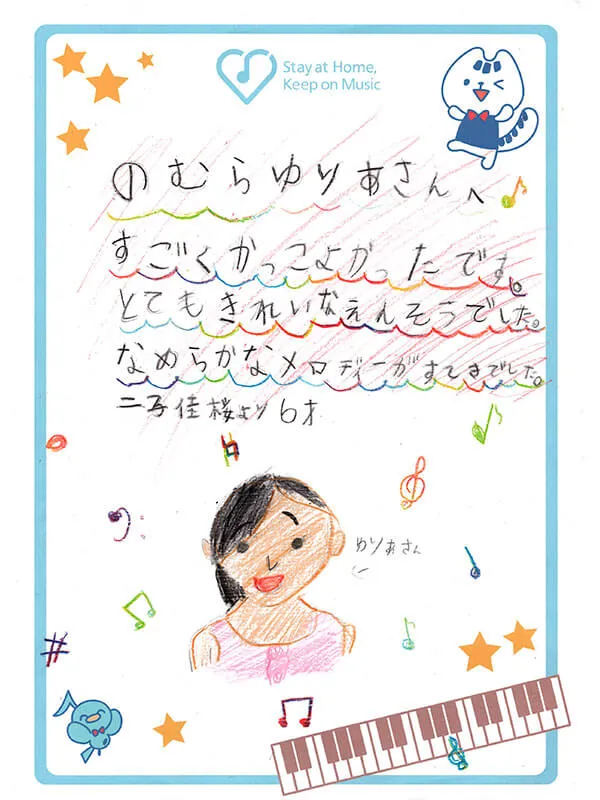 Stay at Home,
Keep on Music
のむらゆりあさんへ
すごくかっこよかったです。
とてもきれいなえんそうでした。
なめらかなメロディーがすてきでした。
二子佳桜より 6才
ゆりあさん